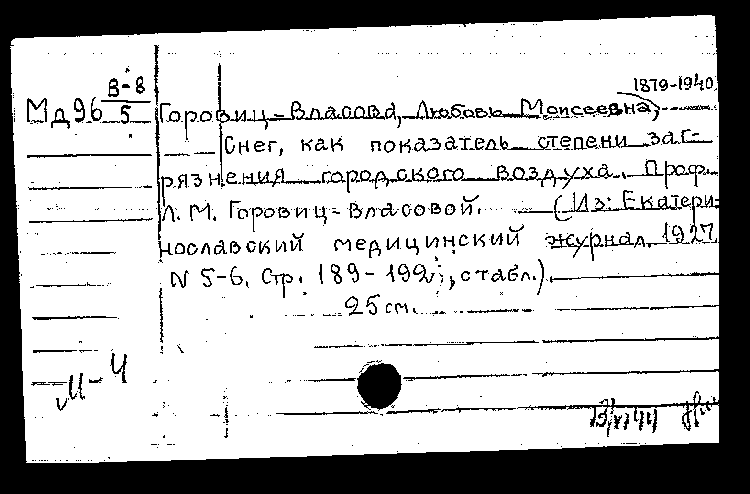 1879-1940
Мд96 В-8/5 Горовиц-Власова, Любовь Моисеевна,
Снег, как показатель степени заг-
рязнения городского воздуха. Проф.
Л. М. Горовиц-Власовой. (Из: Екатери-
нославский медицинский журнал. 1927.
N 5-6. Стр. 189-199, с табл.).
25 см.
М-4